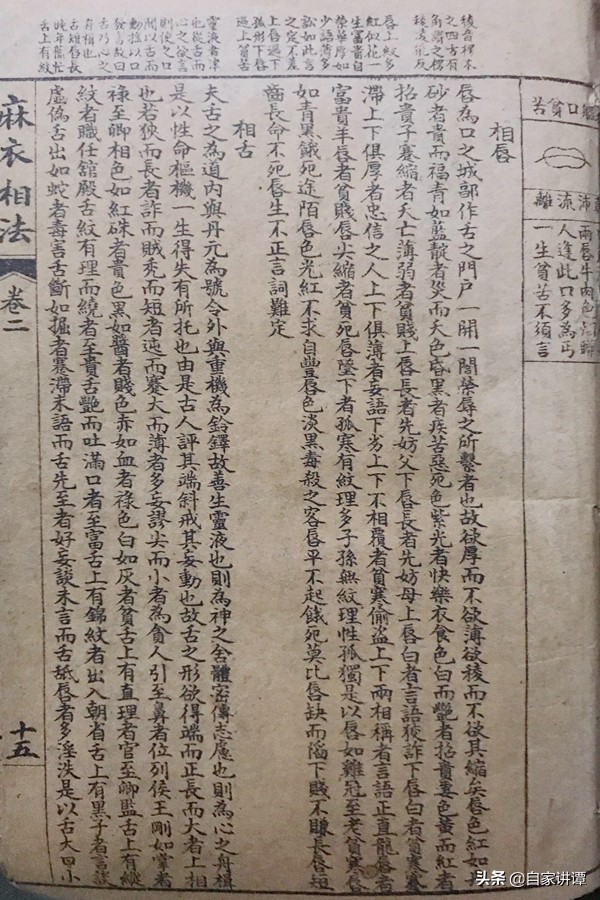 稜音楞木
之四方有
角謂之楞
稜淩能反
唇上紋多
紅似花一
生富貴自
榮華厚如
少語薄多
訟如此言
之定不差
孤州下唇
上唇過下
過上貧苦
靈液者津
也從舌而
心之欲言
則使之口
開以古而
動搖以口
發言故曰
古乃心之
舟楫也
古短唇長
此年舊忙
舌上有紋
苦貧口
離流沛
兩唇牛肉色
人逢此口多為丐
一生貧苦不須言
相唇
唇為口之城郭作舌之門户一開一闔榮辱之所繫者也故欲厚而不欲薄欲稜而不欲其縮矣唇色紅如丹
砂者貴而福青如藍靛者災而夭色昏黑者疾苦惡死色紫光者快樂衣食色白而艷者招貴妻色黄而紅者
招貴子蹇縮者夭亡薄弱者貧賤上唇長者先妨父下唇長者先妨母上唇白者言語狹詐下唇白者貧寒蹇
滯上下俱厚者忠信之人上下俱薄者妄語下劣上下不相覆者貧寒偷盜上下兩相稱者言語正直龍唇者
富貴羊唇者貧賤唇尖縮者貧死唇墜下者孤寒有紋理多子孫無紋理性孤獨是以唇如雞冠至老貧寒唇
如青黑餓死途陌唇色光紅不求自豐唇色淡黑毒殺之客唇平不起餓死莫比唇缺而陷下賤不賺長唇短
齒長命不死唇生不正言詞難定
相舌
夫舌之為道内與丹元為號令外與重機為鈴鐸故善生靈液也則為神之舍體密傳志慮也則為心之舟楫
是以性命樞機一生得失有所托也由是古人評其端斜戒其妄動也故舌之形欲得端而正長而大者上相
也若狹而長者詐而賊秃而短者迍而蹇大而薄者多妄謬尖而小者為貪人引至鼻者位列侯王剛如掌者
祿至卿相色如紅硃者貴色黑如醬者賤色赤如血者祿色白如灰者貧舌上有直理者官至卿監舌上有縱
紋者職任館殿舌紋有理而繞者至貴舌艷而吐滿口者至富舌上有錦紋者出入朝省舌上有黑子者言談
虛僞舌出如蛇者毒害舌斷如掘者蹇滯未語而舌先至者好妄談未言而舌舐唇者多淫泆是以舌大口小
麻衣相法
卷二
十五
头条@自家讲谭